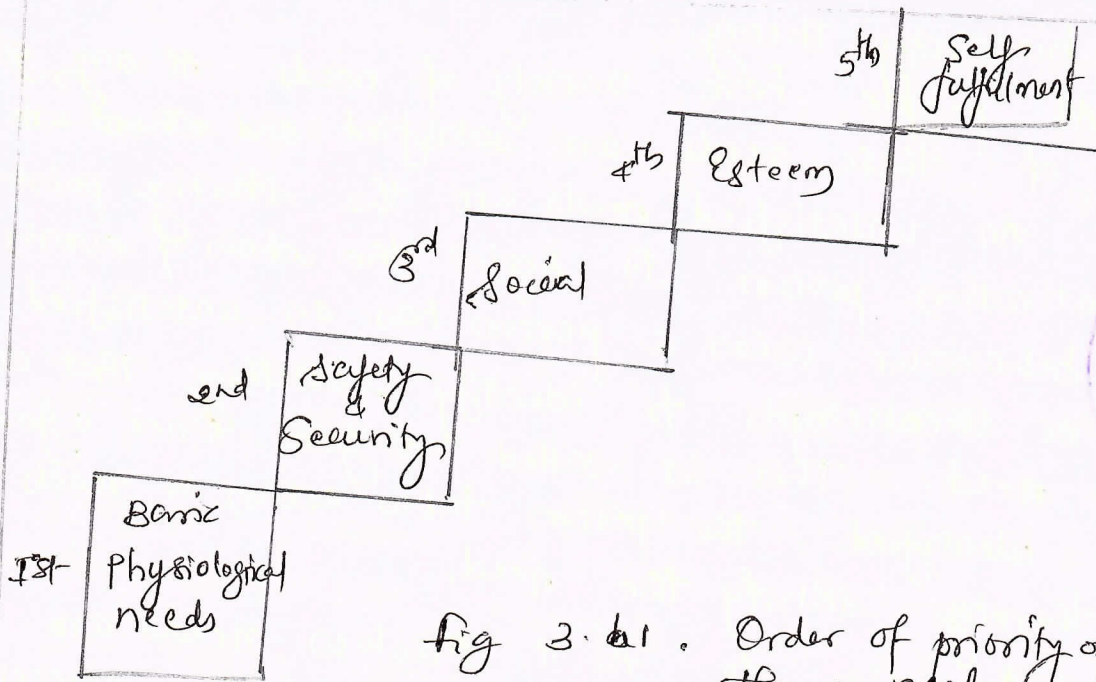 5th
Self
fulfilment
4th
Esteem
3rd
Social
2nd
Safety
&
Security
Ist
Basic
physiological
needs
fig 3.
Order of priority of